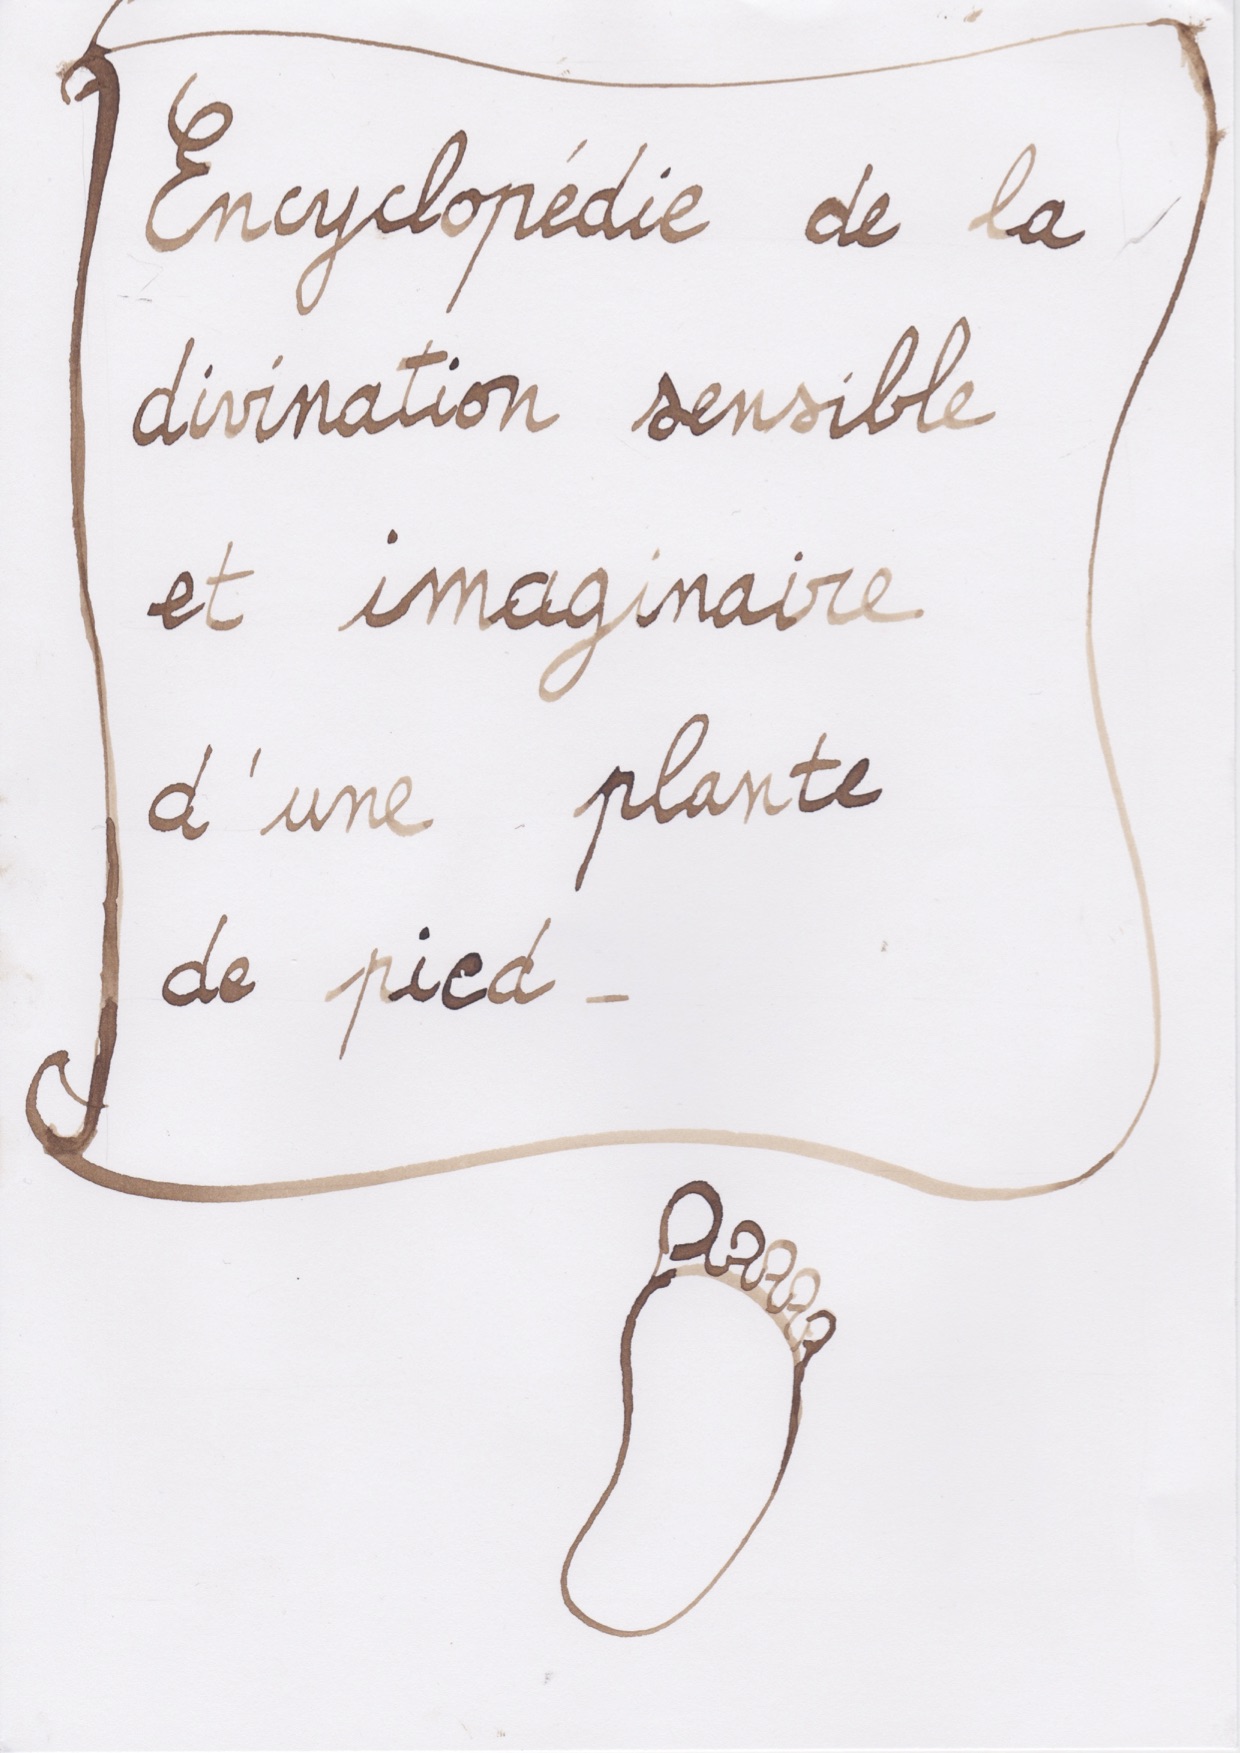 Encyclopédie de la
divination sensible
et imaginaire
d'une plante
de pied _